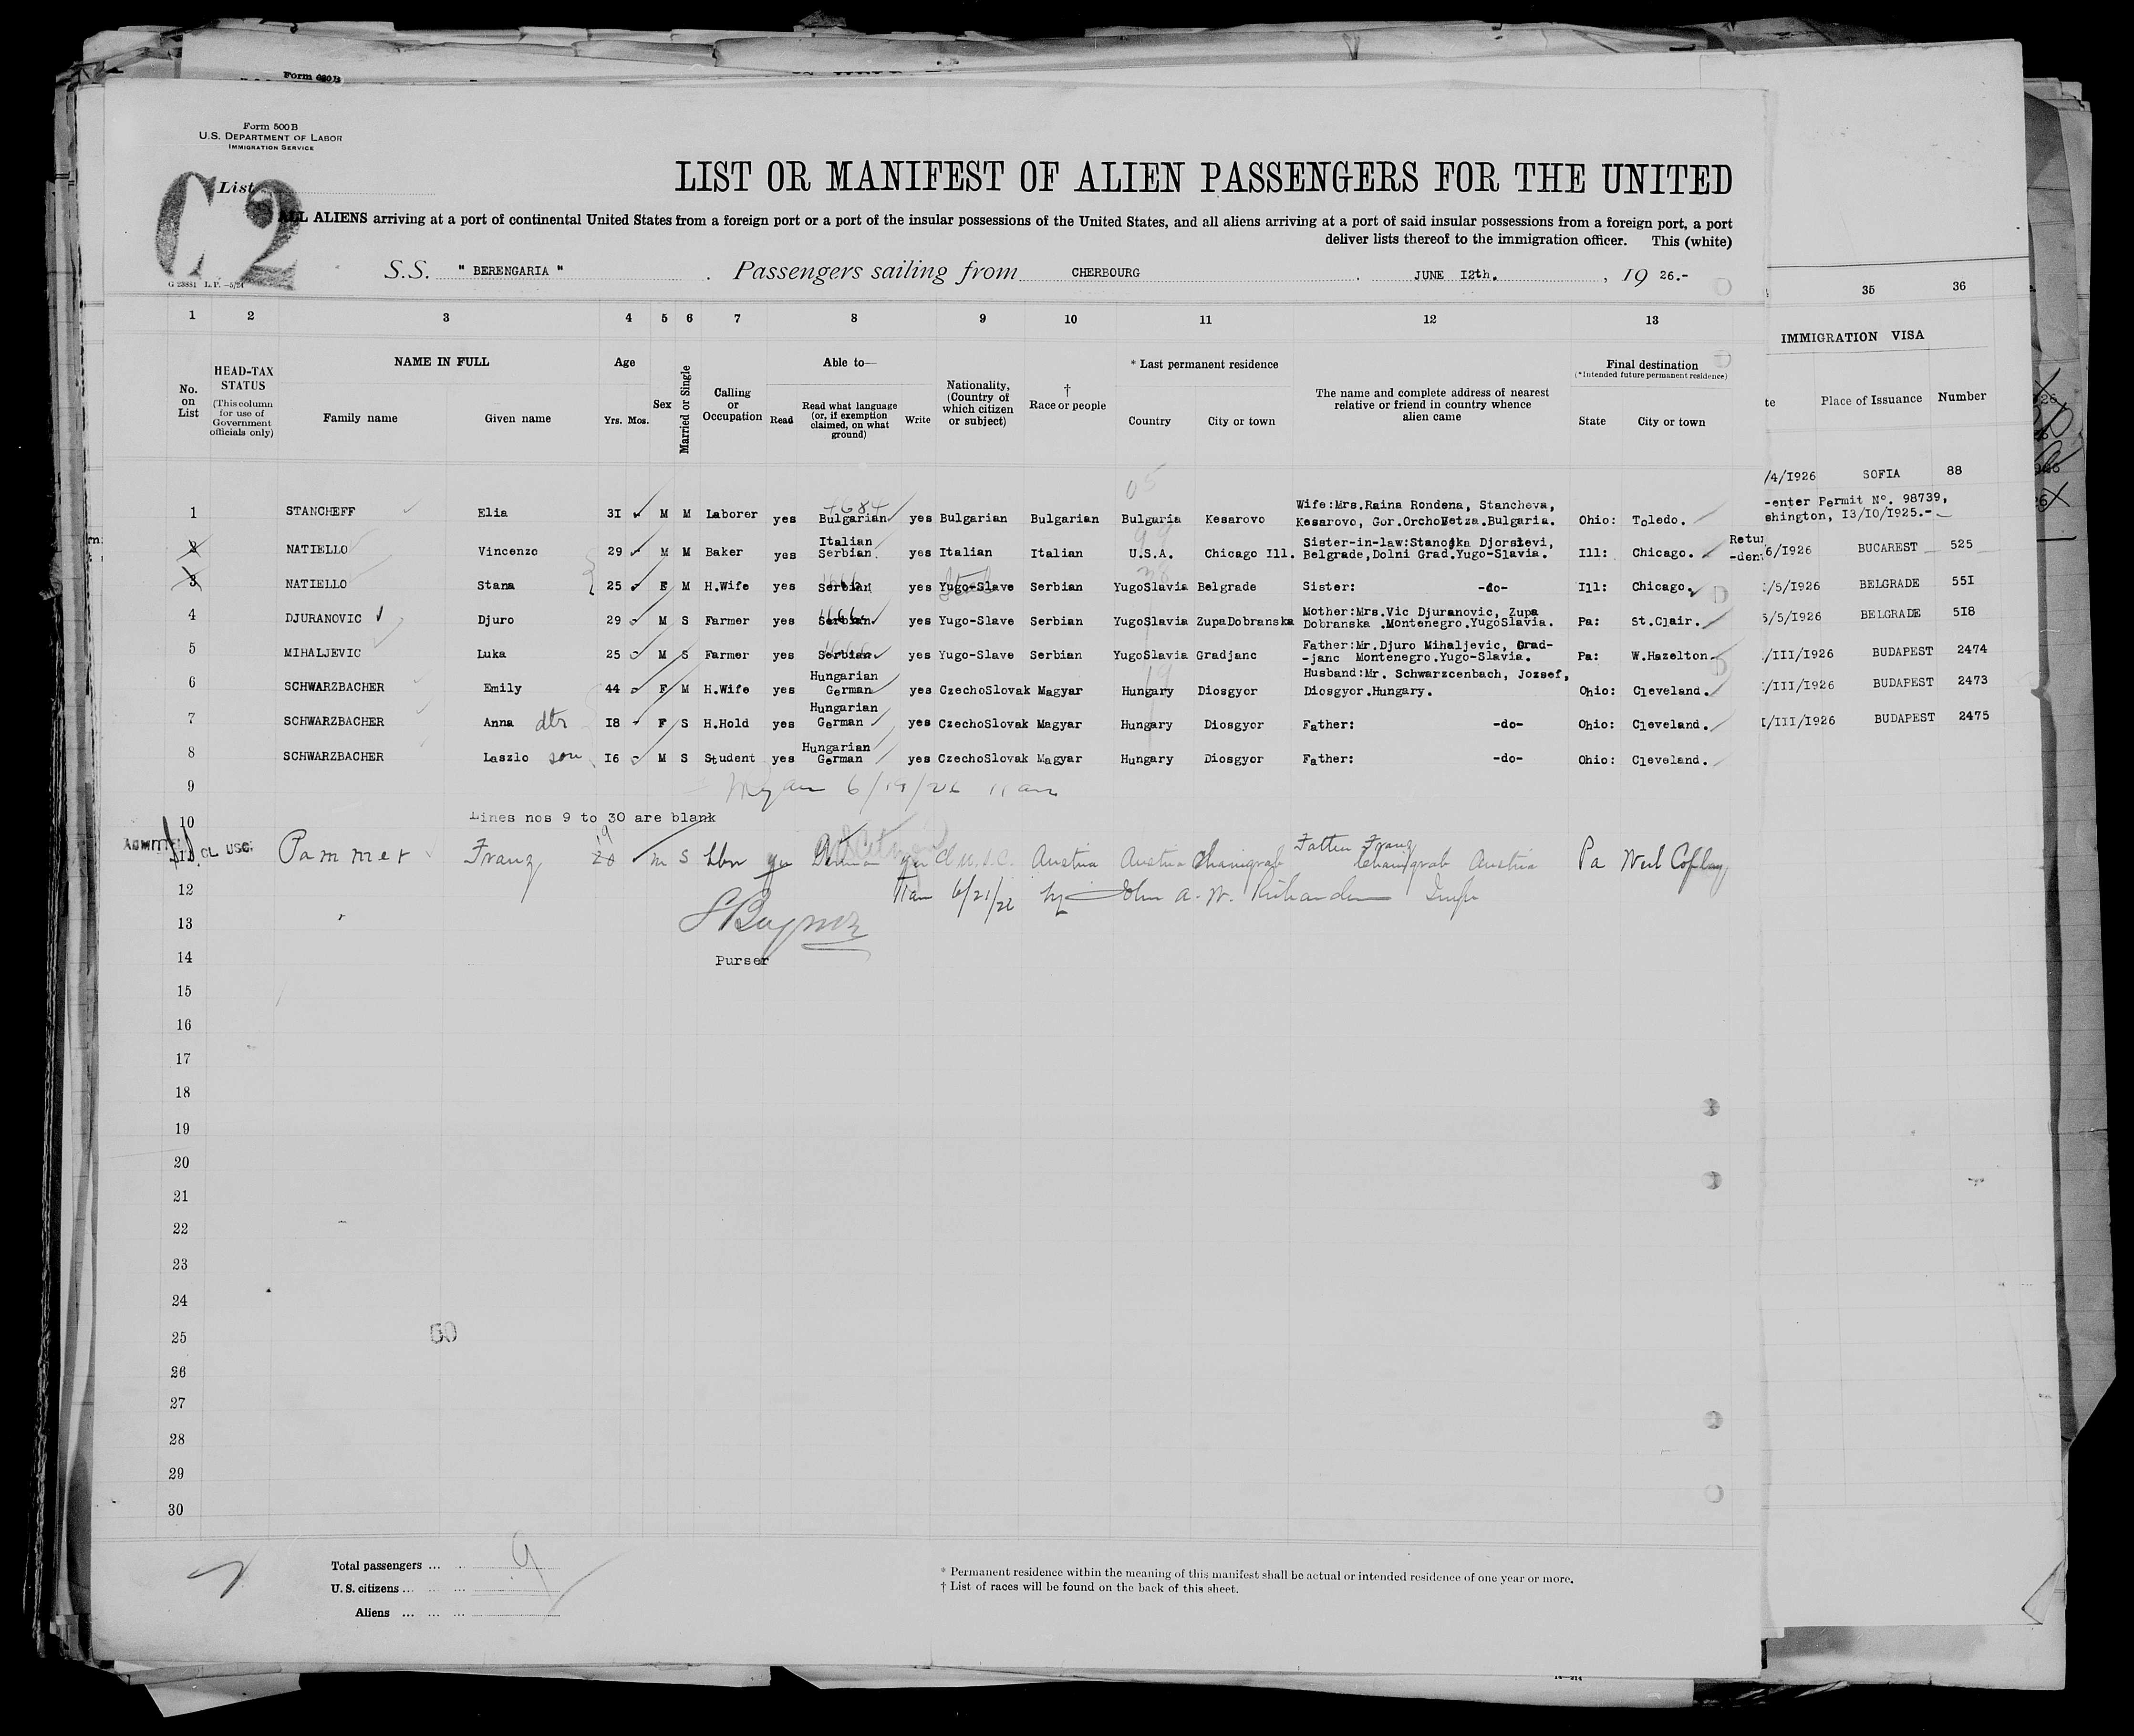 Form 500B
U.S. DEPARTMENT OF LABOR
IMMIGRATION SERVICE
C2
List
LIST OR MANIFEST OF ALIEN PASSENGERS FOR THE UNITED
ALL ALIENS arriving at a port of continental United States from a foreign port or a port of the insular possessions of the United States, and all aliens arriving at a port of said insular possessions from a foreign port, a port
deliver lists thereof to the immigration officer. This (white)
S.S. " BERENGARIA " . Passengers sailing from CHERBOURG . JUNE I2th. , 19 26.-
G 23881 L.P. –5/24
1 2 3 4 5 6 7 8 9 10 11 12 13 35 36
No. on List
HEAD-TAX STATUS (This column for use of Government officials only)
NAME IN FULL
Family name Given name
Age
Yrs. Mos.
Sex
Married or Single
Calling or Occupation
Able to—
Read
Read what language (or, if exemption claimed, on what ground)
Write
Nationality, (Country of which citizen or subject)
† Race or people
* Last permanent residence
Country City or town
The name and complete address of nearest relative or friend in country whence alien came
Final destination
(*Intended future permanent residence)
State City or town
IMMIGRATION VISA
Place of Issuance Number
/4/I926 SOFIA 88
05
4684
1 STANCHEFF Elia 3I M M Laborer yes Bulgarian yes Bulgarian Bulgarian Bulgaria Kesarovo Wife:Mrs.Raina Rondena, Stancheva, Kesarovo, Gor.Orchovetza.Bulgaria. Ohio: Toledo.
-enter Permit No. 98739,
shington, I3/IO/I925.-
99
2 NATIELLO Vincenzo 29 M M Baker yes Italian Serbian. yes Italian Italian U.S.A. Chicago Ill. Sister-in-law:Stanojka Djorsievi, Belgrade,Dolni Grad.Yugo-Slavia. Ill: Chicago.
Retu
-den
6/I926 BUCAREST 525
3 NATIELLO Stana 25 F M H.Wife yes Serbian yes Yugo-Slave Serbian YugoSlavia Belgrade Sister: -do- Ill: Chicago.
/5/I926 BELGRADE 55I
4 DJURANOVIC Djuro 29 M S Farmer yes Serbian yes Yugo-Slave Serbian YugoSlavia ZupaDobranska Mother:Mrs.Vic Djuranovic, Zupa Dobranska .Montenegro.YugoSlavia. Pa: St.Clair.
5/5/I926 BELGRADE 5I8
5 MIHALJEVIC Luka 25 M S Farmer yes Serbian yes Yugo-Slave Serbian YugoSlavia Gradjanc Father:Mr.Djuro Mihaljevic, Grad- -janc Montenegro.Yugo-Slavia. Pa: W.Hazelton.
/III/I926 BUDAPEST 2474
19
6 SCHWARZBACHER Emily 44 F M H.Wife yes Hungarian German yes CzechoSlovak Magyar Hungary Diosgyor Husband:Mr. Schwarzcenbach, Jozsef, Diosgyor.Hungary. Ohio: Cleveland.
/III/I926 BUDAPEST 2473
7 SCHWARZBACHER Anna dtr I8 F S H.Hold yes Hungarian German yes CzechoSlovak Magyar Hungary Diosgyor Father: -do- Ohio: Cleveland.
I/III/I926 BUDAPEST 2475
8 SCHWARZBACHER Laszlo son I6 M S Student yes Hungarian German yes CzechoSlovak Magyar Hungary Diosgyor Father: -do- Ohio: Cleveland.
9 6/19/26 11 am
10 Lines nos 9 to 30 are blank
11 Pammer Franz 20 19 m S Lbr yes German yes Austria Austria Father Franz Austria Pa West Coplay
12 11am 6/21/26 by John A. W. Richardson Insp
13
14 Purser
15
16
17
18
19
20
21
22
23
24
25 60
26
27
28
29
30
Total passengers ... 9
U. S. citizens ...
Aliens ...
* Permanent residence within the meaning of this manifest shall be actual or intended residence of one year or more.
† List of races will be found on the back of this sheet.